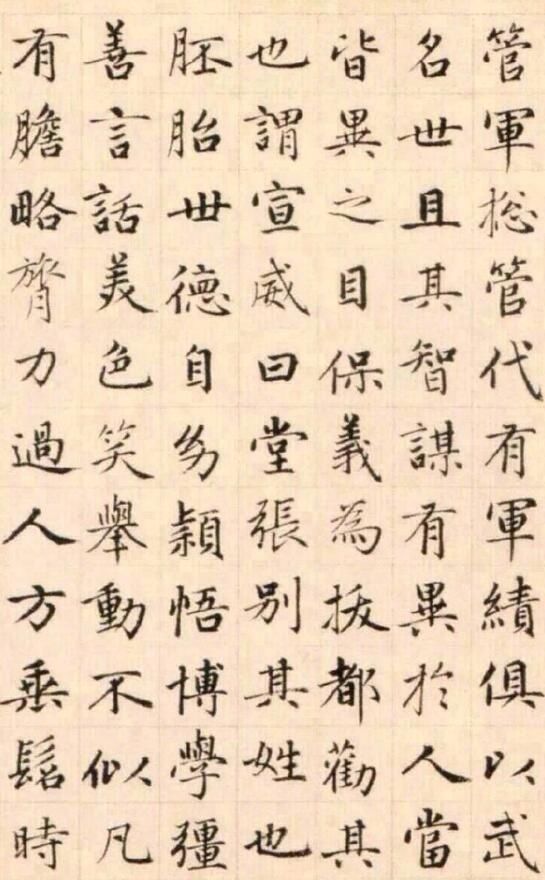 管軍総管代有軍績俱以武
名世且其智謀有異於人當
皆異之目保義為拔都勸其
也謂宣威曰堂張別其姓也
胚胎世德自幼穎悟博學彊
善言話美色笑舉動不似凡
有膽略膂力過人方垂髫時